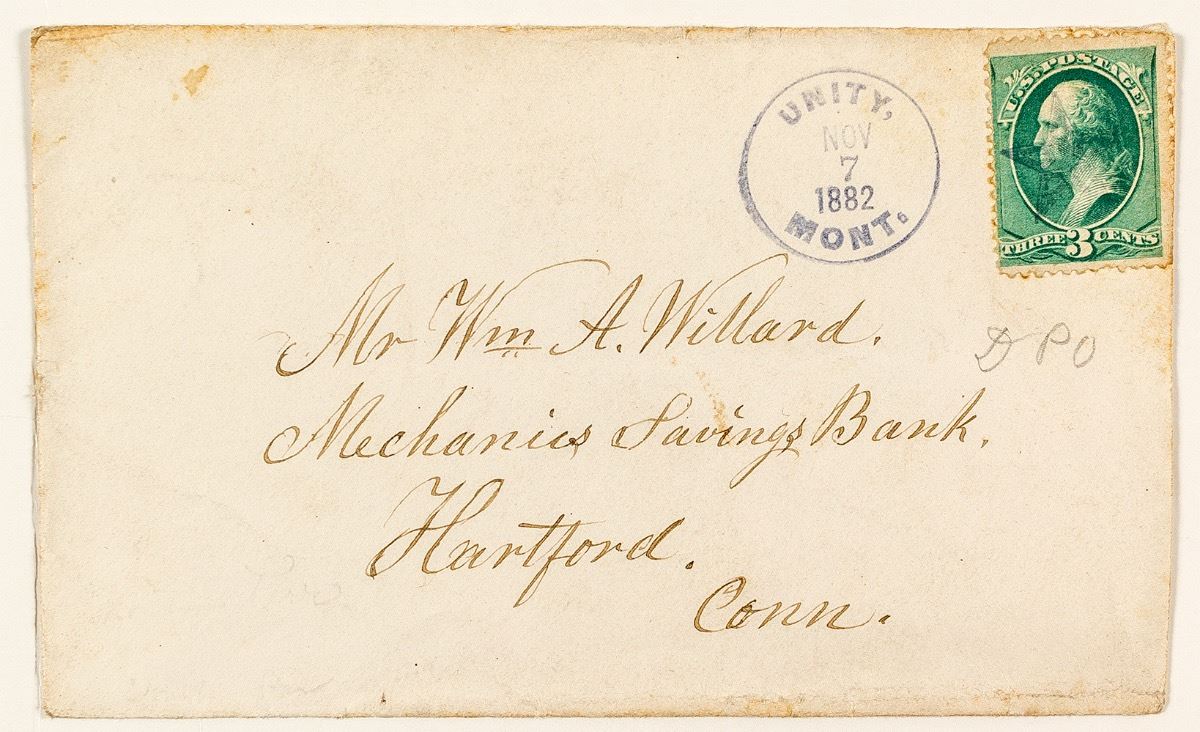 UNITY,
NOV
7
1882
MONT.
U.S. POSTAGE
THREE 3 CENTS
Mr Wm A. Willard.
DPO
Mechanics Savings Bank.
Hartford.
Conn.